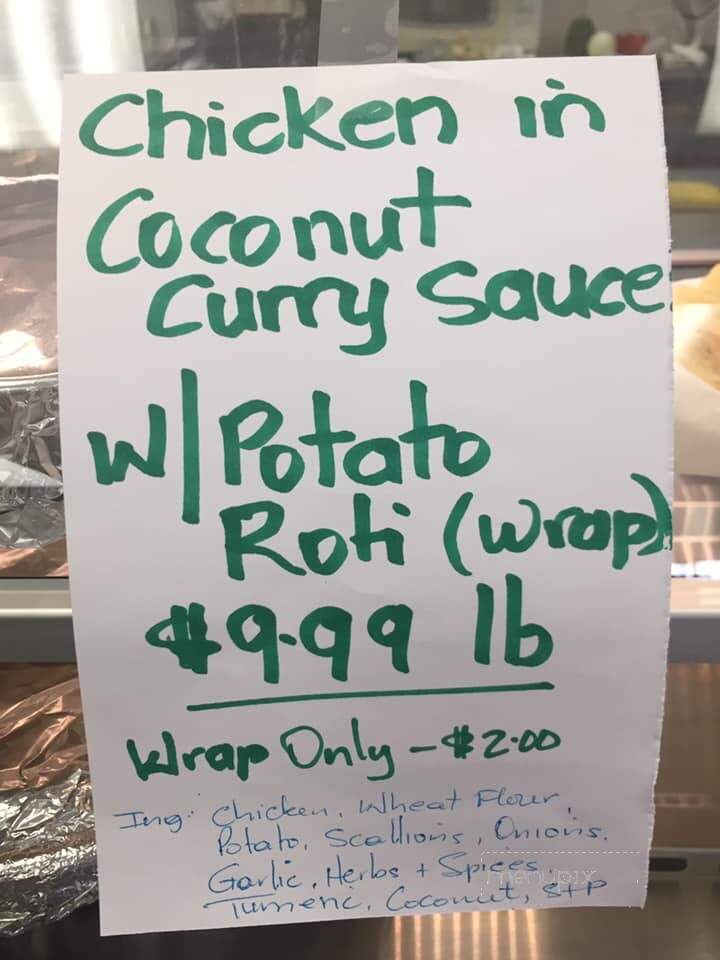 Chicken in
Coconut
Curry Sauce
W/Potato
Roti (wrap)
$9.99 lb
Wrap Only - $2.00
Ing: Chicken, Wheat Flour,
Potato, Scallions, Onions,
Garlic, Herbs + Spices
Tumeric, Coconut, S+P
menupix